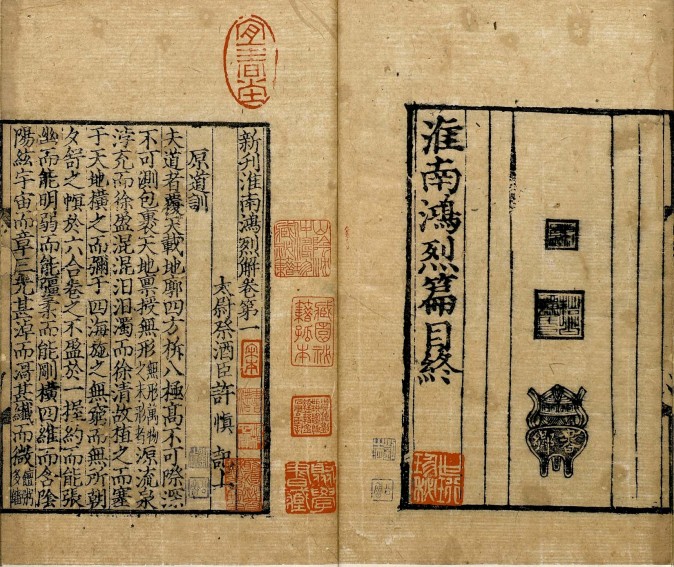 淮南鴻烈篇目終
新刊淮南鴻烈解卷第一
太尉祭酒臣許慎記上
原道訓
夫道者覆天載地廓四方柝八極髙不可際深
不可測包裹天地禀授無形無形萬物之未形者源流泉
浡充而徐盈混混汩汩濁而徐清故植之而塞
于天地横之而彌于四海施之無窮而無所朝
夕舒之幎於六合卷之不盈於一握約而能張
幽而能明弱而能彊柔而能剛横四維而含陰
陽紘宇宙而章三光甚淖而滒甚纖而微
宜春堂
山陰沈仲濤珍藏秘籍
藏園秘籍孤本
宋本